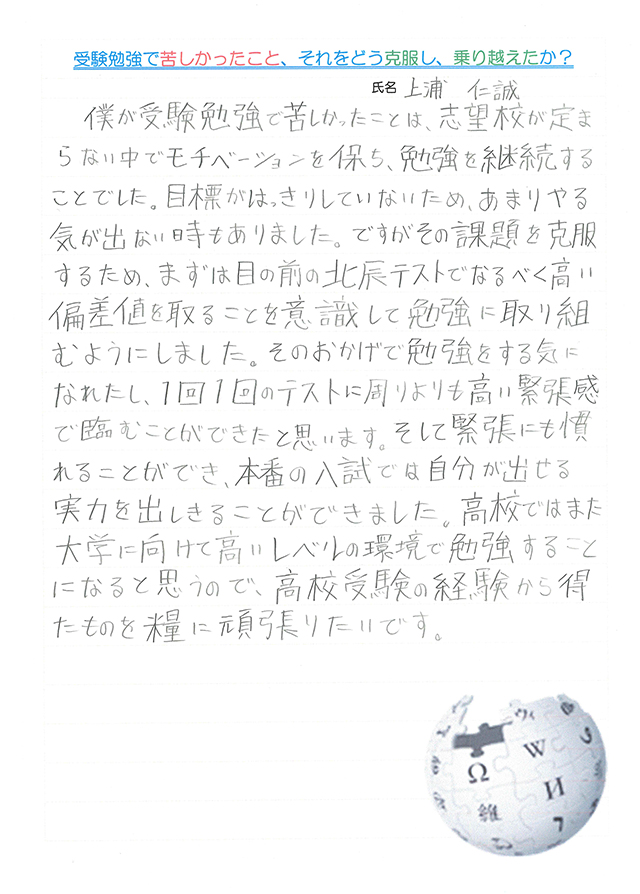 受験勉強で苦しかったこと、それをどう克服し、乗り越えたか？
氏名 上浦 仁誠
僕が受験勉強で苦しかったことは、志望校が定ま
らない中でモチベーションを保ち、勉強を継続する
ことでした。目標がはっきりしていないため、あまりやる
気が出ない時もありました。ですがその課題を克服
するため、まずは目の前の北辰テストでなるべく高い
偏差値を取ることを意識して勉強に取り組
むようにしました。そのおかげで勉強をする気に
なれたし、1回1回のテストに周りよりも高い緊張感
で臨むことができたと思います。そして緊張にも慣
れることができ、本番の入試では自分が出せる
実力を出しきることができました。高校ではまた
大学に向けて高いレベルの環境で勉強すること
になると思うので、高校受験の経験から得
たものを糧に頑張りたいです。
Ω W И 維 ウィ